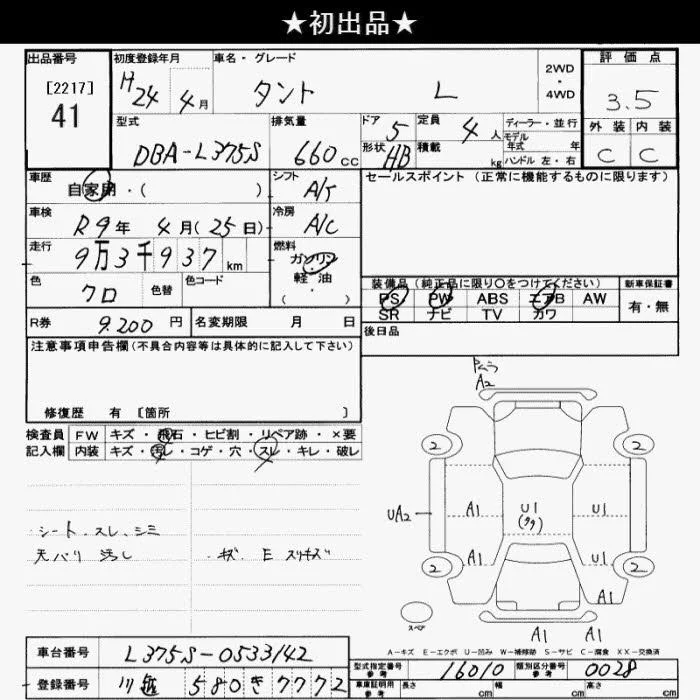 ★初出品★
出品番号
[2217]
41
初度登録年月
H24 4月
車名・グレード
タント L
2WD
・
4WD
評価点
3.5
外装 内装
C C
型式
DBA-L375S
排気量
660cc
ドア 5
形状 HB
定員 4人
積載 kg
ディーラー・並行
モデル
年式 年
ハンドル 左・右
車歴
自家用・( )
シフト
A/T
車検
R9年 4月(25日)
冷房
A/C
走行
9万3千937km
燃料
ガソリン
軽・油
( )
色
クロ
色替
色コード
R券 9.200円
名変期限 月 日
セールスポイント(正常に機能するものに限ります)
装備品(純正品に限り○をつけてください)
PS PW ABS エアB AW
SR ナビ TV カワ
新車保証書
有・無
後日品
注意事項申告欄(不具合内容等は具体的に記入して下さい)
修復歴 有 [箇所 ]
検査員
記入欄
FW キズ・飛石・ヒビ割・リペア跡・×要
内装 キズ・汚レ・コゲ・穴・スレ・キレ・破レ
シート.スレ.シミ
天バリ 汚し
キズ E スリキズ
A2
2 2
UA2
A1 U1 U1
A1 U1
2 2
A1
A1 A1
スペア
A-キズ E-エクボ U-凹み W-補修跡 S-サビ C-腐食 XX-交換済
車台番号 L375S-0533142
登録番号 川越 580 き 7772
型式指定番号
参考
16010
類別区分番号
参考
0028
車庫証明用
参考
長さ cm 幅 cm 高さ cm